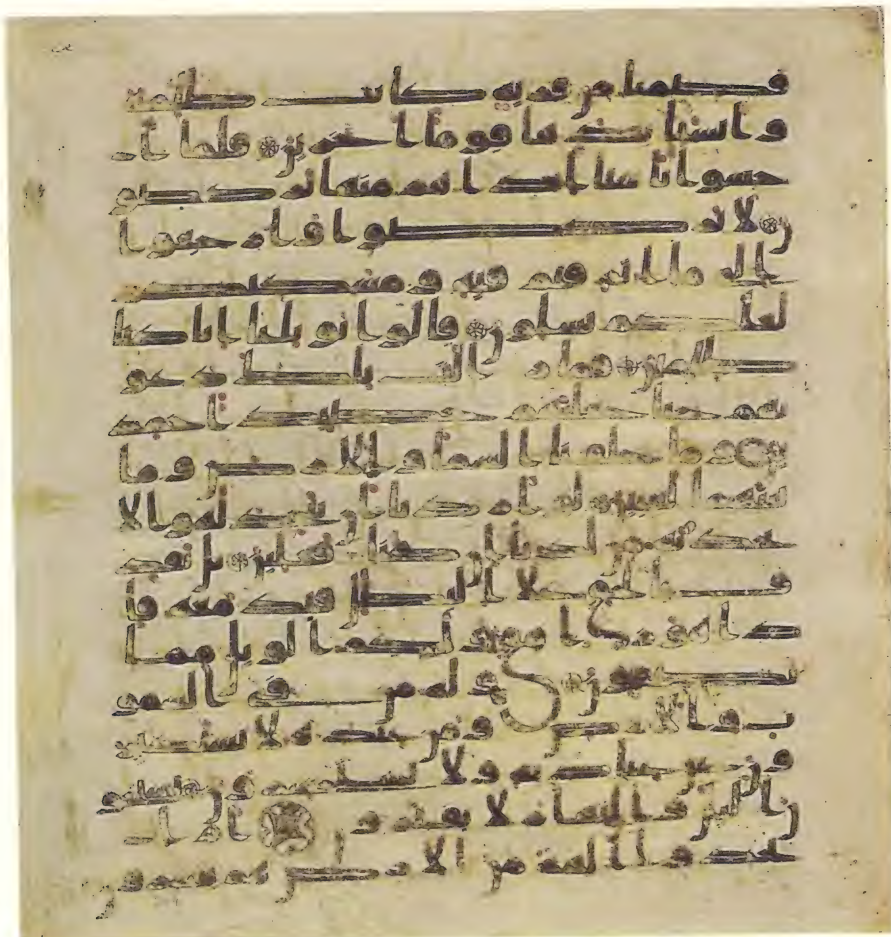 قصمنا من قرية كانت ظلمة
وانشانا بعدها قوما اخرين فلما ا
حسوا باسنا اذا هم منها يركضو
ن لا تركضوا وارجعوا ا
لى ما اترفتم فيه ومسكنكم
لعلكم تسلون قالوا يويلنا انا كنا
ظلمين فما زالت تلك دعو
يهم حتى جعلنهم حصيدا خمد
ين وما خلقنا السما والارض وما
بينهما لعبين لو اردنا ان نتخذ لهوا لا
تخذنه من لدنا ان كنا فعلين بل نقذ
ف بالحق على البطل فيدمغه فا
ذا هو زهق ولكم الويل مما
تصفون وله من في السمو
ت والارض ومن عنده لا يستكبرو
ن عن عبادته ولا يستحسرون يسبحو
ن اليل والنهار لا يفترون ام ا
تخذوا الهة من الارض هم ينشرون